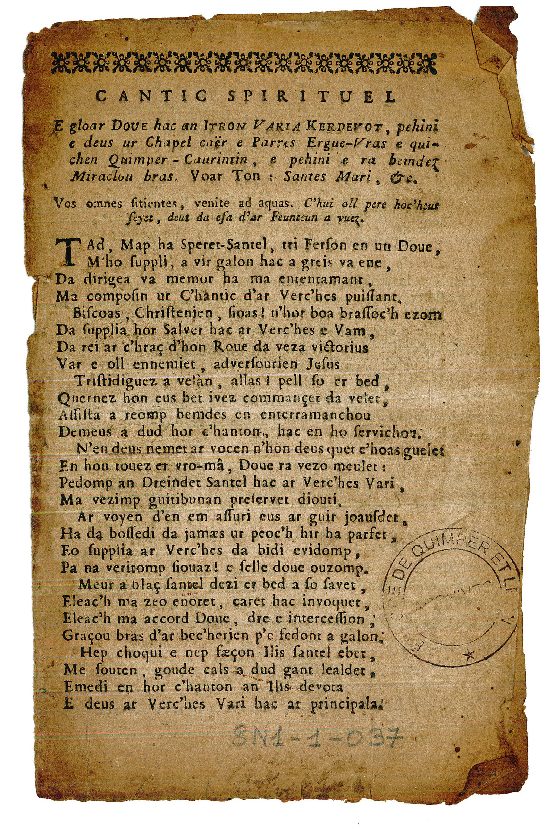 CANTIC SPIRITUEL
E gloar DOUE hac an ITRON VARIA KERDEVOT, pehini
e deus ur Chapel caër e Parres Ergue-Vras e qui-
chen Quimper-Caurintin, e pehini e ra bemdez
Miraclou bras. Voar Ton : Santes Mari, &c.
Vos omnes sitientes, venite ad aquas. C'hui oll pere hoc'heus
sezet, deut da eva d'ar Feunteun a vuez.
TAd, Map ha Speret-Santel, tri Ferson en un Doue,
M'ho suppli, a vir galon hac a greis va ene,
Da dirigea va memor ha ma ententamant,
Ma composin ut C'hantic d'ar Verc'hes puissant.
Biscoas, Christenien, sioas! n'hor boa brassoc'h ezom
Da supplia hor Salver hac ar Verc'hes e Vam,
Da rei ar c'hraç d'hon Roue da veza victorius
Var e oll ennemiet, adversourien Jesus
Tristidiguez a velàn, allas! pell so er bed,
Quernez hon eus bet ivez commançet da velet,
Assista a reomp bemdes en enterramanchou
Demeus a dud hor c'hanton, hac en ho servichou.
N'en deus nemet ar vocen n'hon deus quet c'hoas guelet
En hon touez er vro-mâ, Doue ra vezo meulet :
Pedomp an Dreindet Santel hac ar Verc'hes Vari,
Ma vezimp guitibunan preservet diouti.
Ar voyen d'en em assuri eus ar guir joausdet,
Ha da bossedi da jamæs ur peoc'h hir ha parfet,
Eo supplia ar Verc'hes da bidi evidomp,
Pa na veritomp siouaz! e selle doue ouzomp.
Meur a blaç santel dezi er bed a so savet,
Eleac'h ma zeo enoret, caret hac invoquet,
Eleac'h ma accord Doue, dre e intercession,
Graçou bras d'ar bec'herien p'e fedont a galon.
Hep choqui e nep fæçon Ilis santel ebet,
Me souten, goude cals a dud gant lealdet,
Emedi en hor c'hanton an Ilis devota
E deus ar Verc'hes Vari hac ar principala.
DE QUIMPER ET L
8N1-1-037